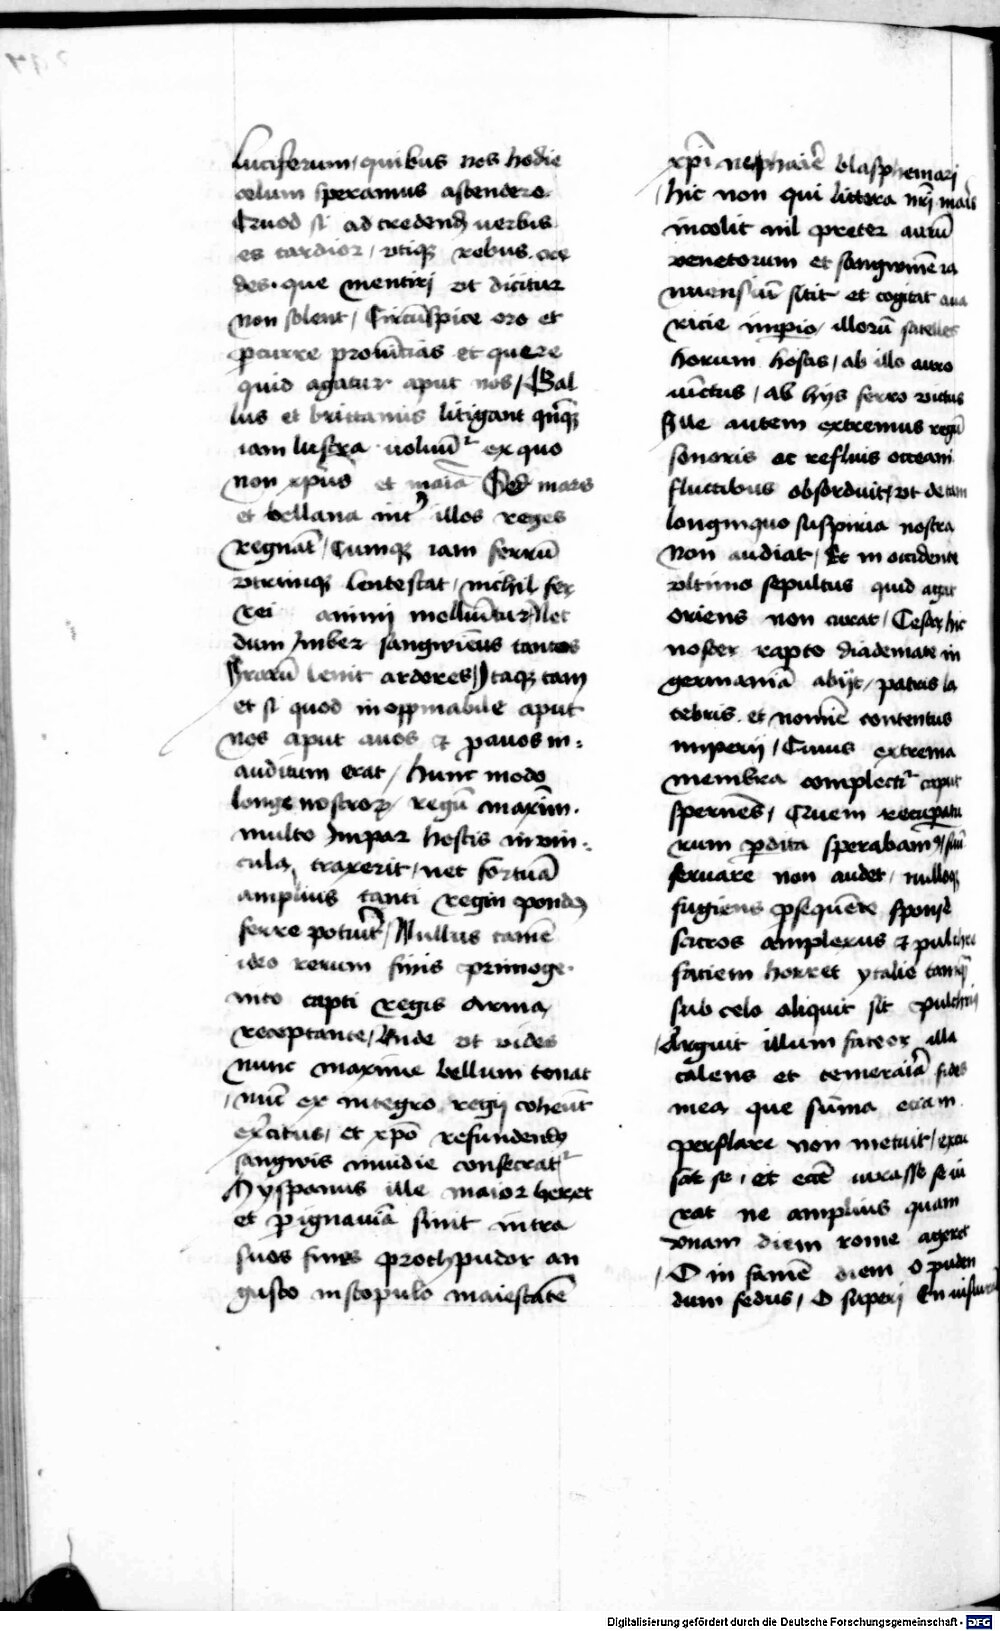 luciferum / quibus nos hodie
celum speramus ascendere.
Quod si ad credendum verbis
es tardior / vtique rebus cre
des. que mentiri vt dicitur
non solent / Circūspice oro et
ꝑcurre prouīcias et quere
quid agatur aput nos / Gal
lus et brittanus litigant
iam lustra voluūt ex quo
non xp̄us et maria Sed mars
et bellana int̉ illos reges
regnāt / Cumqꝫ iam ferrū
vtrimqꝫ lentescat / nichil fer
rei animi molliūtur / Nec
dum ymber sangwineus tantos
Irarū lenit ardores / Itaqꝫ tam
et si quod inoppinabile aput
nos aput auos ꝫ ꝓauos in=
auditum erat / hunc modo
longe nostroꝝ regū maxim.
multo Impar hostis in vin=
cula traxerit / nec fortunā
amplius tanti regni pondus
ferre potuit / Nullus tamē
ideo rerum finis primoge.
nito capti regis Arma
receptante / Vnde vt vides
nunc maxime bellum tonat
/ nūc ex integro regij coheūt
exercitus / et xp̄o refundendus
sangwis inuidie consecratur
Hyspanus ille maior heret
et ꝑ ignauiā sinit intra
suos fines proch pudor an
gusto in scopulo maiestatē
xp̄i nepharie blasphemari
/ hic non qui littora nr̄i maris
incolit nil preter aurū
venetorum et sangwinē ia
nuensiū sitit et cogitat aua
ricie impio / illorū satelles
horum hostis / ab illo auro
uictus / ab hijs ferro victus
Ille autem extremus regū
sonoris ac refluis occeani
fluctibus obsorduit / vt de tam
longinquo suspiria nostra
Non audiat / Et in occidente
vltimo sepultus quid agat
oriens non curat / Cesar hic
noster rapto diademate in
germaniā abijt / patris la
tebris et nomīe contentus
imperij / Cuius extrema
membra complectit̉ caput
spernēs / Quem recuperatu
rum ꝑdita sperabamus / suū
seruare non audet / nulloqꝫ
fugiens ꝓsequēte sponse
sacros amplexus ꝫ pulchra
faciem horret ytalie tamqᷓ
sub celo aliquit sit pulchrius
/ Arguit illum fateor illa
calens et temeraria fides
mea que suma etiam
perflare non metuit / excu
sat se / et ecce iurasse se iu
rat ne amplius quam
vnam diem rome ageret
/ O in famē diem o puden
dum fedus / O superi En iusiura
Digitalisierung gefördert durch die Deutsche Forschungsgemeinschaft - DFG